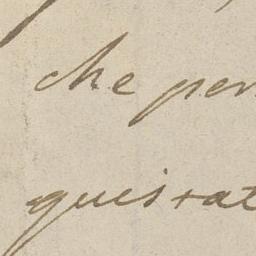 che per
quistat